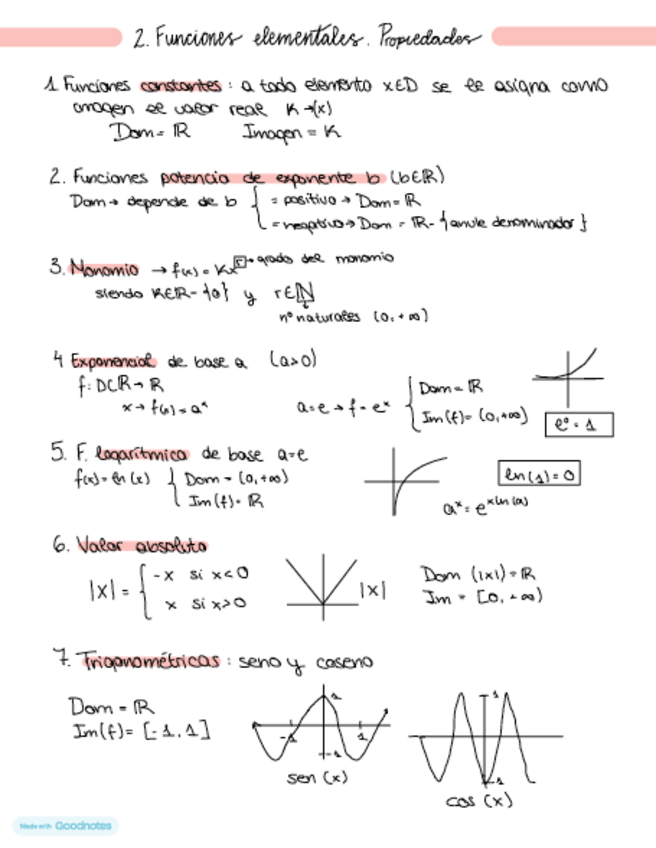 2. Funciones elementales. Propiedades
1 Funciones constantes : a todo elemento x∈D se le asigna como
imagen el valor real K →(x)
Dom = ℝ Imagen = K
2. Funciones potencia de exponente b (b∈ℝ)
Dom → depende de b { = positivo → Dom = ℝ
= negativo → Dom = ℝ - {anule denominador}
3. Monomio → f(x) = Kx^r → grado del monomio
siendo K∈ℝ - {0} y r∈ℕ
nº naturales (0, +∞)
4 Exponencial de base a (a>0)
f: D⊂ℝ → ℝ
x → f(x) = aˣ a = e → f = eˣ { Dom = ℝ
Im(f) = (0, +∞)
e⁰ = 1
5. F. logarítmica de base a=e
f(x) = ln (x) { Dom = (0, +∞)
Im(f) = ℝ
ln(1) = 0
aˣ = e^(x ln(a))
6. Valor absoluto
|x| = { -x si x<0
x si x>0
|x|
Dom (|x|) = ℝ
Im = [0, +∞)
7. Trigonométricas : seno y coseno
Dom = ℝ
Im(f) = [-1, 1]
1
-1 1
-1
sen (x)
1
-1
cos (x)
Made with Goodnotes